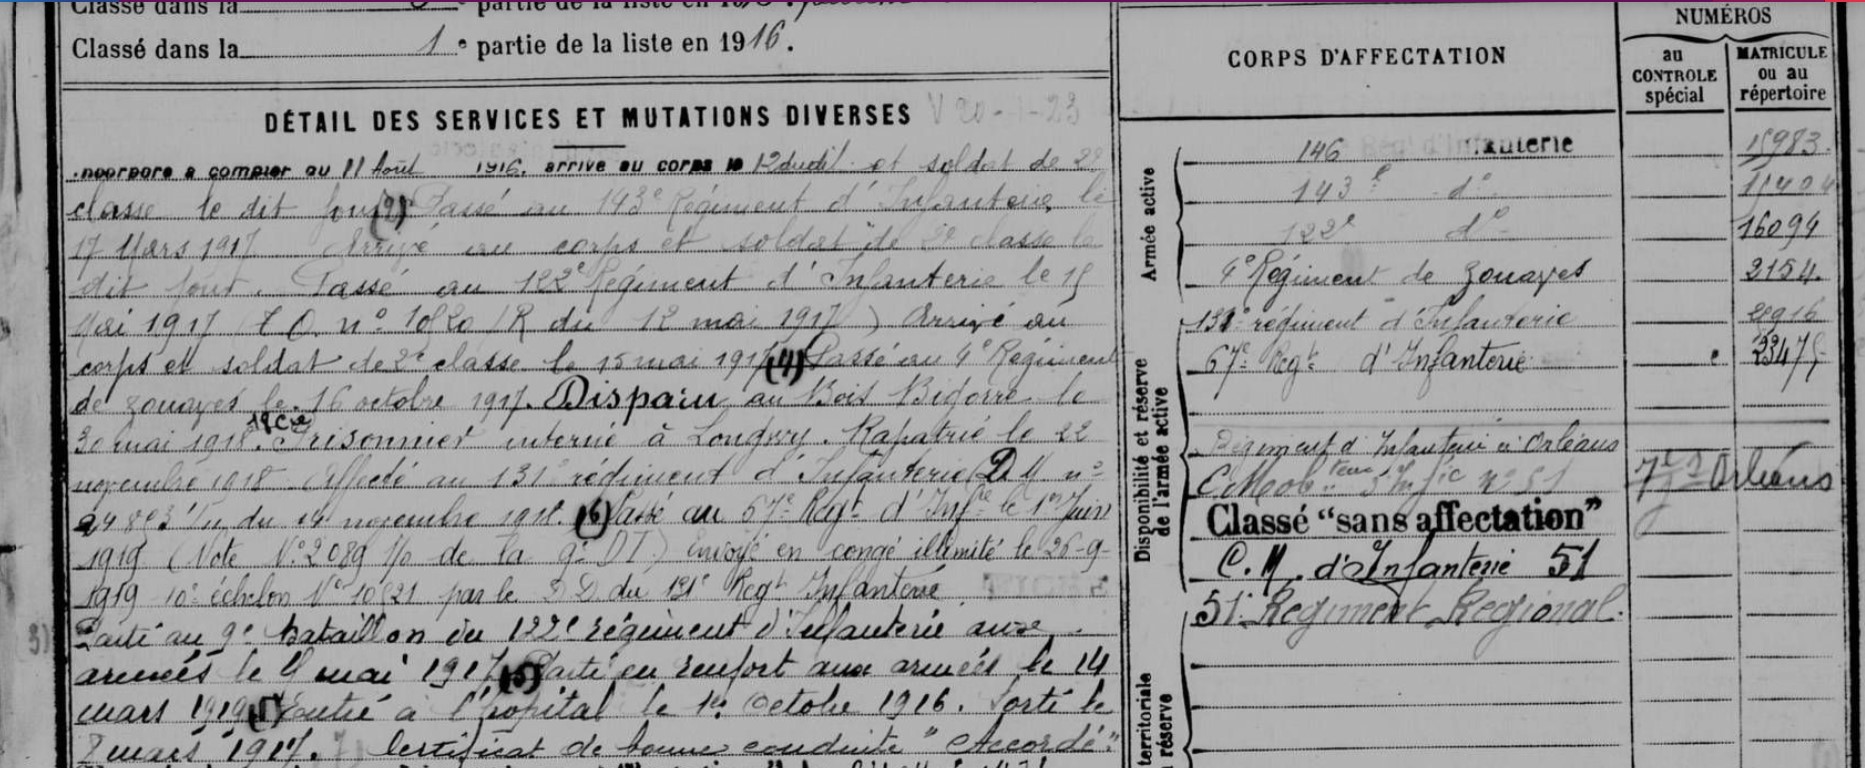 Classé dans la partie de la liste en
Classé dans la 1e partie de la liste en 1916.
DÉTAIL DES SERVICES ET MUTATIONS DIVERSES
V 20-1-23
incorporé à compter du 11 Août 1916. arrivé au corps le 12 dudit et soldat de 2e
classe le dit jour (2) Passé au 143e Régiment d'Infanterie le
17 Mars 1917 Arrivé au corps et soldat de 2e classe le
dit jour. Passé au 122e Régiment d'Infanterie le 15
Mai 1917 (O. n° 1020/R du 12 mai 1917) Arrivé au
corps et soldat de 2e classe le 15 mai 1917 (4) Passé au 4e Régiment
de zouaves le 16 octobre 1917. Disparu au Bois Bigorre le
30 mai 1918. 19 Cie Prisonnier interné à Longwy. Rapatrié le 22
novembre 1918 Affecté au 131e régiment d'Infanterie D.M. n°
du 14 novembre 1918. (6) Passé au 67e Regt d'Infie le 1er Juin
1919 (Note N° 2089 1/0 de la 9e DI) Envoyé en congé illimité le 26-9-
1919 10e échelon N° 10621 par le D.D. du 131e Regt Infanterie
3) Parti au 9e bataillon du 122e régiment d'Infanterie aux
armées le 4 mai 1917 (5) Parti en renfort aux armées le 14
mars 1919 (1) Entré à l'hôpital le 1er Octobre 1916. Sorti le
2 mars 1917. 7) Certificat de bonne conduite "Accordé."
CORPS D'AFFECTATION
NUMÉROS
au CONTROLE spécial
MATRICULE ou au répertoire
Armée active
146 Infanterie 15983.
143e do 11404
122e do 16094
4e Régiment de zouaves 2154.
131e régiment d'Infanterie 2916
67e Regt d'Infanterie 23475
Disponibilité et réserve de l'armée active
Régiment d'Infanterie à Orléans
C Mob d'Infie n° 51 Orléans
Classé "sans affectation"
C.M. d'Infanterie 51
51e Régiment Régional.
territoriale
réserve